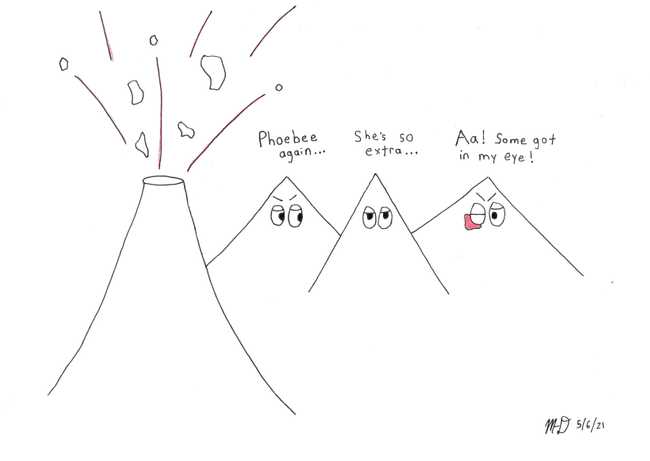 Phoebee
again...
She's so
extra...
Aa! Some got
in my eye!
5/6/21